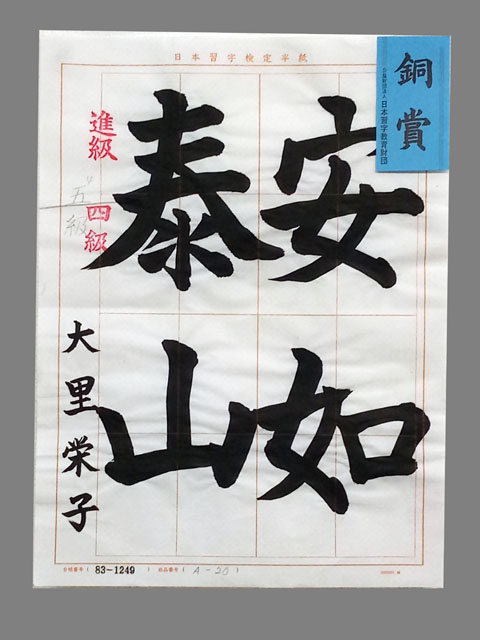 日本習字検定半紙
銅賞
公益財団法人 日本習字教育財団
安如
泰山
進級
五級
四級
大里栄子
会場番号( 83-1249 ) 出品番号( A-20 )